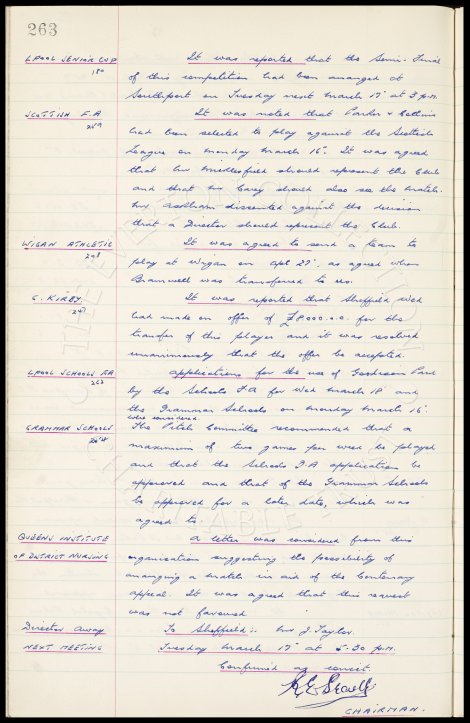 263
LPOOL SENIOR CUP It was reported that the Semi-Final
180 of this competition had been arranged at
Southport on Tuesday next March 17' at 3 p.m.
SCOTTISH F.A It was noted that Parker & Collins
259 had been selected to play against the Scottish
League on Monday March 16'. It was agreed
that Mr Micklesfield should represent the Club
and that Mr Carey should also see the match.
Mr Askham dissented against the decision
that a Director should represent the Club.
WIGAN ATHLETIC It was agreed to send a team to
298 play at Wigan on Apl 27', as agreed when
Bramwell was transferred to us.
G. KIRBY It was reported that Sheffield Wed
247 had made an offer of £8000.0.0. for the
transfer of this player and it was resolved
unanimously that the offer be accepted.
LPOOL SCHOOLS FA Applications for the use of Goodison Park
262 by the Schools FA for Wed March 18' and
the Grammar Schools on Monday March 16'
were considered
GRAMMAR SCHOOLS The Pitch Committee recommended that a
maximum of two games per week be played
and that the Schools F.A application be
approved and that of the Grammar Schools
be approved for a later date, which was
agreed to.
QUEENS INSTITUTE A letter was considered from this
OF DISTRICT NURSING organisation suggesting the possibility of
arranging a match in aid of the Centenary
appeal. It was agreed that this request
was not favoured.
Director away To Sheffield:- Mr J. Taylor.
NEXT MEETING Tuesday March 17' at 5.30 p.m.
Confirmed as correct.
CHAIRMAN.